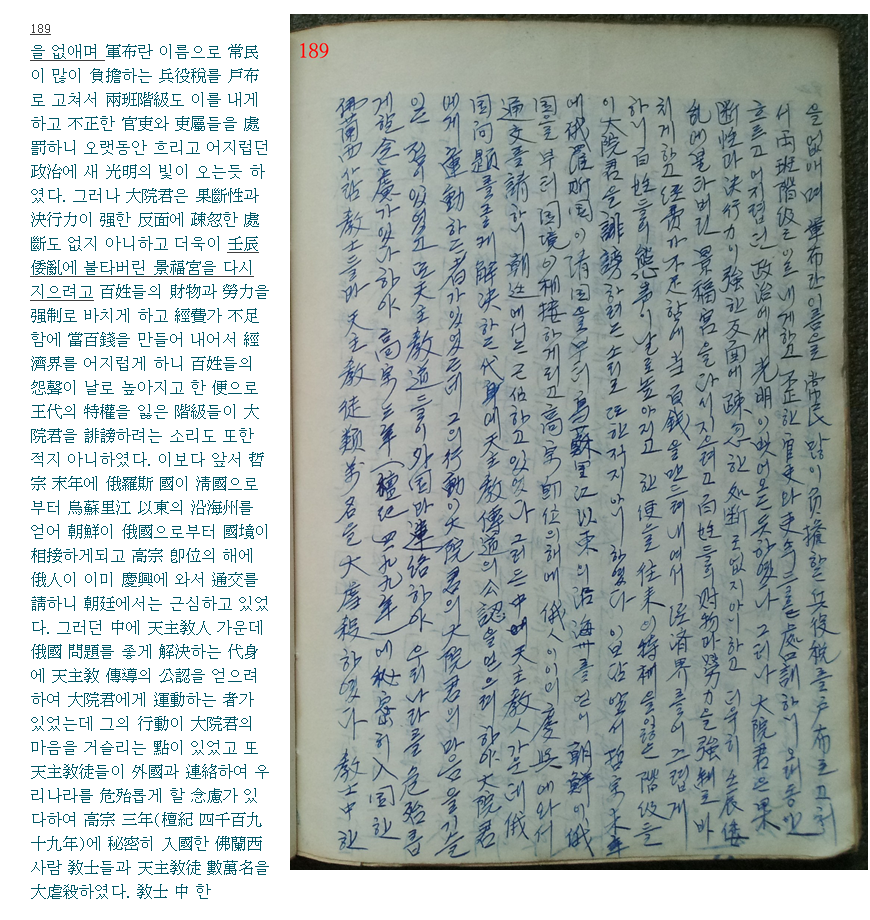 189
을 없애며 軍布란 이름으로 常民
이 많이 負擔하는 兵役稅를 戶布
로 고쳐서 兩班階級도 이를 내게
하고 不正한 官吏와 吏屬들을 處
罰하니 오랫동안 흐리고 어지럽던
政治에 새 光明의 빛이 오는듯 하
였다. 그러나 大院君은 果斷性과
決行力이 强한 反面에 疎忽한 處
斷도 없지 아니하고 더욱이 壬辰
倭亂에 불타버린 景福宮을 다시
지으려고 百姓들의 財物과 勞力을
强制로 바치게 하고 經費가 不足
함에 當百錢을 만들어 내어서 經
濟界를 어지럽게 하니 百姓들의
怨聲이 날로 높아지고 한 便으로
王代의 特權을 잃은 階級들이 大
院君을 誹謗하려는 소리도 또한
적지 아니하였다. 이보다 앞서 哲
宗 末年에 俄羅斯 國이 淸國으로
부터 烏蘇里江 以東의 沿海州를
얻어 朝鮮이 俄國으로부터 國境이
相接하게되고 高宗 卽位의 해에
俄人이 이미 慶興에 와서 通交를
請하니 朝廷에서는 근심하고 있었
다. 그러던 中에 天主敎人 가운데
俄國 問題를 좋게 解決하는 代身
에 天主敎 傳導의 公認을 얻으려
하여 大院君에게 運動하는 者가
있었는데 그의 行動이 大院君의
마음을 거슬리는 點이 있었고 또
天主敎徒들이 外國과 連絡하여 우
리나라를 危殆롭게 할 念慮가 있
다하여 高宗 三年(檀紀 四千百九
十九年)에 秘密히 入國한 佛蘭西
사람 敎士들과 天主敎徒 數萬名을
大虐殺하였다. 敎士 中 한
189
을 없애며 軍布란 이름으로 常民 많이 负擔할 兵役税를 户布로 고쳐
서 两班階級도 이를 내게 하고 不正한 官吏와 吏속들을 處罰하니 오래동안
흐르고 어지럽던 政治에 새 光明이 빛이 오는듯 하였다 그러나 大院君은 果
断性과 决行力이 強한 反面에 疎忽한 処断도 없지 아니하고 더욱히 壬辰倭
乱에 불타버린 景福宮을 다시 지으려고 百姓들의 財物과 勞力을 強制로 바
치게 하고 經費가 不足함에 当百銭을 만드러 내여서 经済界를 어즈럽게
하니 百姓들의 怨声이 날로 높아지고 한便을 의 特権을 잃은 階級들
이 大院君을 誹謗하려는 소리도 또한 저지 아니하였다 이보담 앞서 哲宗 末年
에 俄羅斯国이 清国을부터 烏蘇里江 以東의 沿海州를 언어 朝鮮이 俄
国을부터 国境이 相接하게 되고 高宗 即位의 해에 俄人이 이미 慶興에 와서
通交를 請하니 朝廷에서는 근심하고 있었다 그러든 中에 天主教人 가운데 俄
国问題를 좋게 解決하는 代身에 天主教 傳道의 公認을 언으려 하야 大院君
에게 運動하든 者가 있었는데 그의 行動이 大院君의 마음을
点이 있었고 또 天主教道들이 外国과 連絡하야 우리나라를 危殆롭
게 할 念慮가 있다하야 高宗 三年(檀纪 四一九九年)에 秘密히 入国한
佛蘭西 사람 教士들과 天主教徒 数萬名을 大虐殺하였다 教士中 한